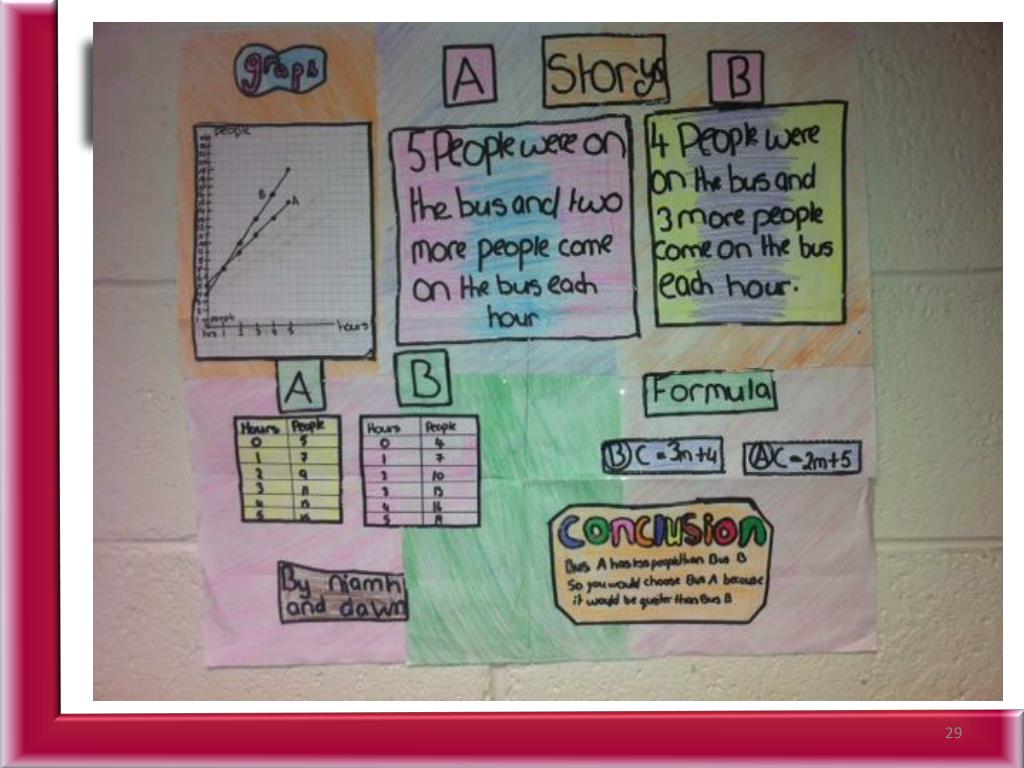 graph
A
Storys
B
People
B
A
People
hrs 1 2 3 4 5
hours
5 People were on
the bus and two
more people come
on the bus each
hour
4 People were
on the bus and
3 more people
come on the bus
each hour.
A
B
Hours People
0 5
1 7
2 9
3 11
4 13
5
Hours People
0 4
1 7
2 10
3 13
4 16
5 19
Formula
B C = 3n+4
A C = 2m+5
Conclusion
Bus A has less people than Bus B
So you would choose Bus A because
it would be quiter than Bus B
By niamh
and dawn
29